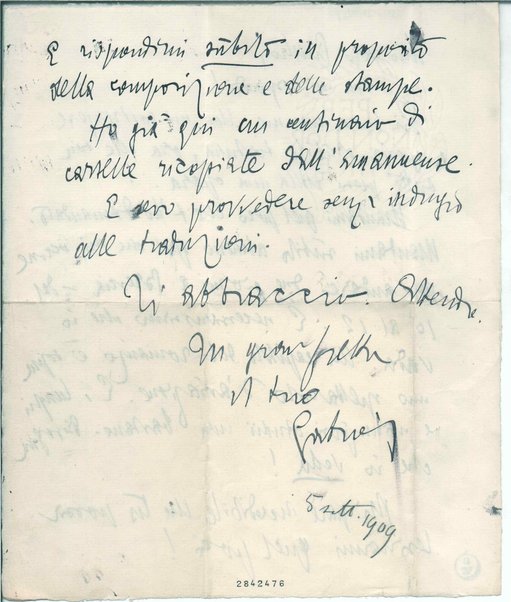 E rispondimi subito in proposito
della composizione e delle stampe.
Ho già qui un centinaio di
cartelle ricopiate dall'amanuense.
E provvedere senza indugio
alle traduzioni.
Ti abbraccio. Attendo.
In gran fretta
il tuo
Gabriel
5 sett. 1909
2842476